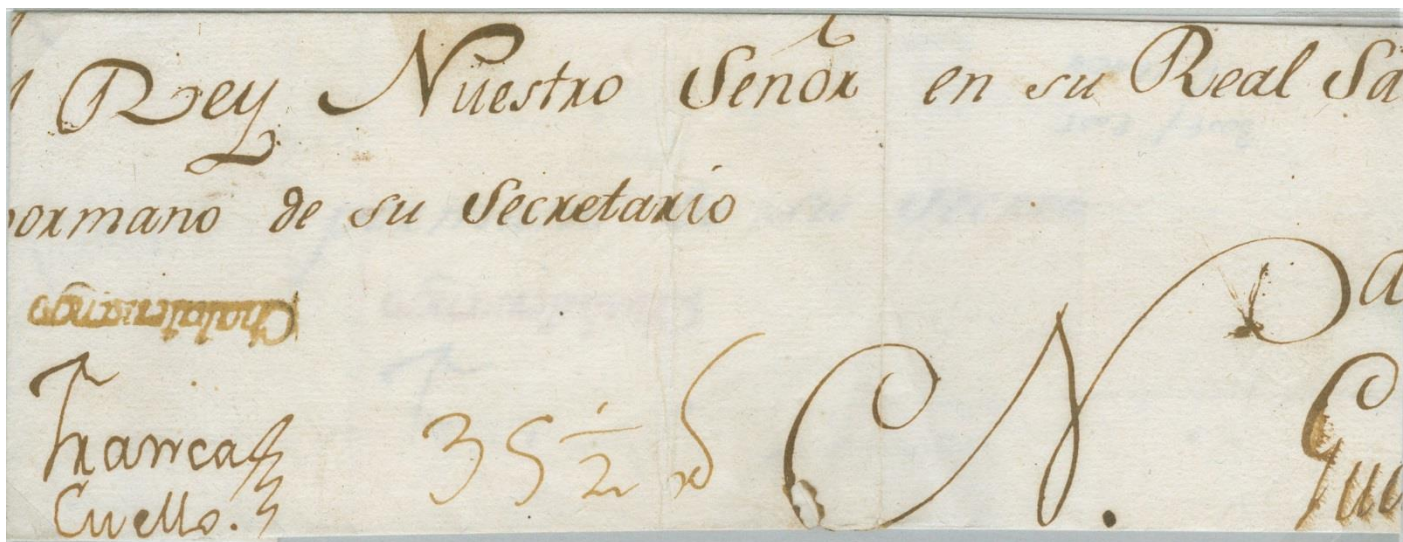 Rey Nuestro Señor en su Real Sa
pormano de su Secretario
Chalatenango
Franca
Cuello.
35 1/2 rs
N.
Gua